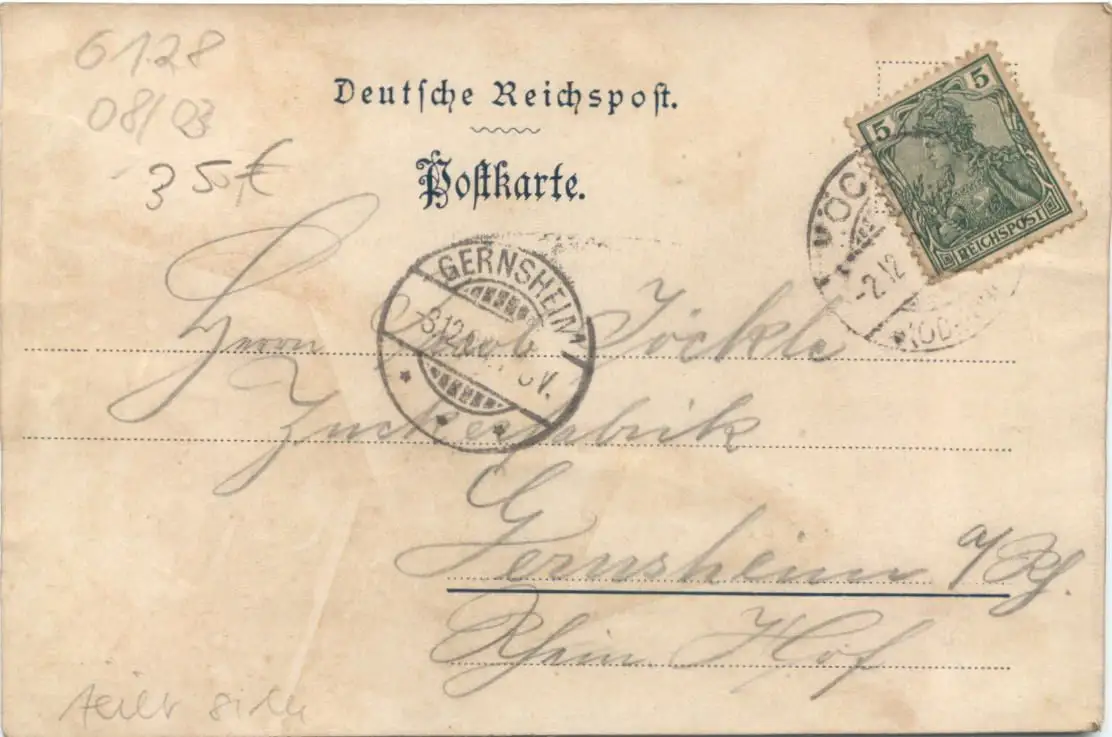 6128
08/03
350€
Deutsche Reichspost.
Postkarte.
5 5
REICHSPOST
HÖC
-2.12
GERNSHEIM
-3.12.00
V.
Herrn Jacob Jöckle
Zuckerfabrik
Gernsheim a/Rh.
Rhein Hof